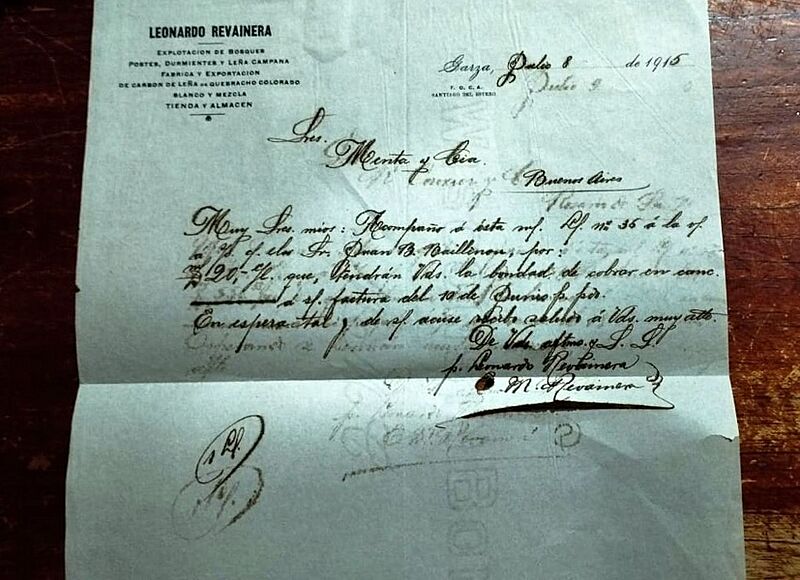 LEONARDO REVAINERA
EXPLOTACION DE BOSQUES
POSTES, DURMIENTES Y LEÑA CAMPANA
FABRICA Y EXPORTACION
DE CARBON DE LEÑA DE QUEBRACHO COLORADO
BLANCO Y MEZCLA
TIENDA Y ALMACEN
Garza, Julio 8 de 1915
F. C. C. A.
SANTIAGO DEL ESTERO
Julio 9
Sres.
Menta y Cia.
Buenos Aires
Muy Sres. mios: Acompaño á ésta m/. Lf. nº 35 á la v/.
Sr. Juan B. Baillenou, por:
20,- que, tendrán Vds. la bondad de cobrar en canc.
á s/. factura del 10 de Junio p. pdo.
En espera tal y de s/. acuse recibo saludo á Vds. muy atte.
De Vds. afmo. y S. S.
p. Leonardo Revainera
M. Revainera
1 Lf.